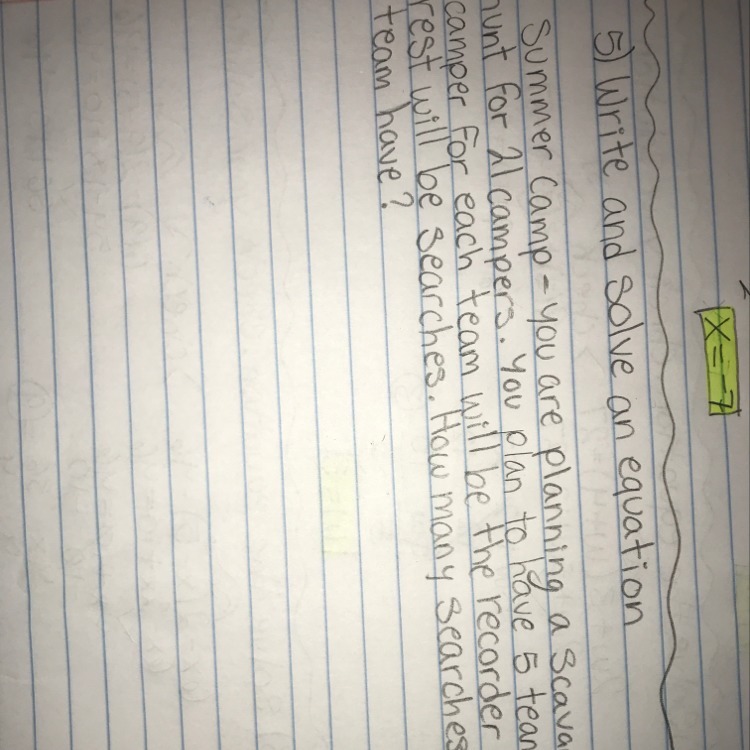 x=-7
5) Write and solve an equation
Summer camp - you are planning a scava
unt for 21 campers. You plan to have 5 team
camper for each team will be the recorder
rest will be searches. How many searches
team have?